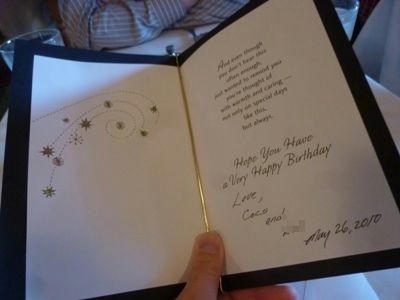 And even though
you don't hear this
often enough,
just wanted to remind you
you're thought of
with warmth and caring—
not only on special days
like this,
but always.
Hope You Have
a Very Happy Birthday
Love,
Coco
and
May 26, 2010